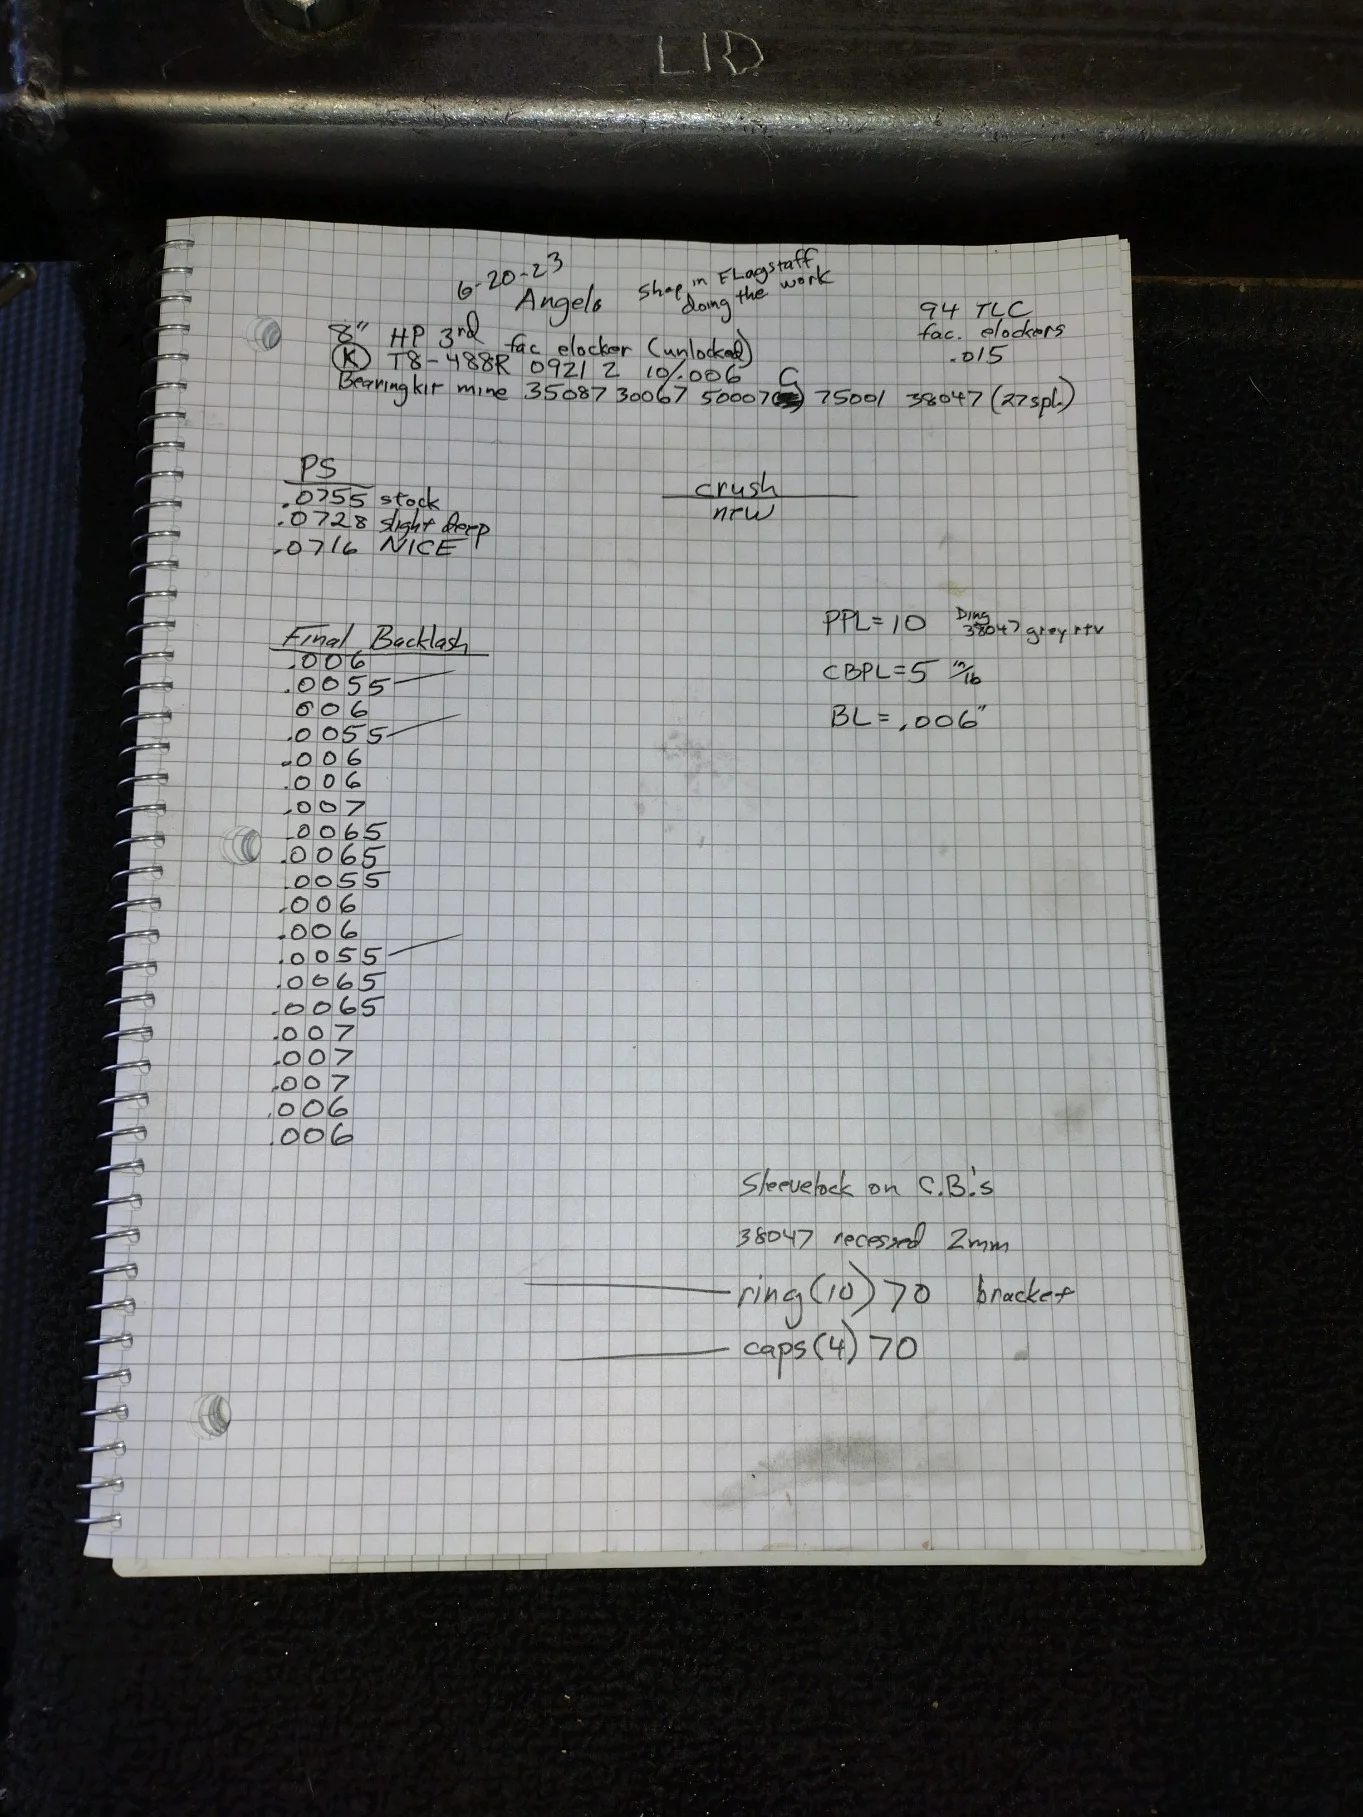 LID
6-20-23
Angelo
Shop in FLagstaff
doing the work
94 TLC
fac. elockers
.015
8" HP 3rd fac elocker (unlocked)
K T8-488R 0921 2 10/.006
Bearing kit mine 35087 30067 50007 C 75001 38047 (27spl.)
PS
.0755 stock
.0728 slight deep
.0716 NICE
crush
new
Final Backlash
.006
.0055
006
.0055
.006
.006
.007
.0065
.0065
.0055
.006
.006
.0055
.0065
.0065
.007
.007
.007
.006
.006
PPL=10
Ding
38047 grey rtv
CBPL=5 in/lb
BL=.006"
Sleevelock on C.B.'s
38047 recessed 2mm
ring(10) 70 bracket
caps(4) 70